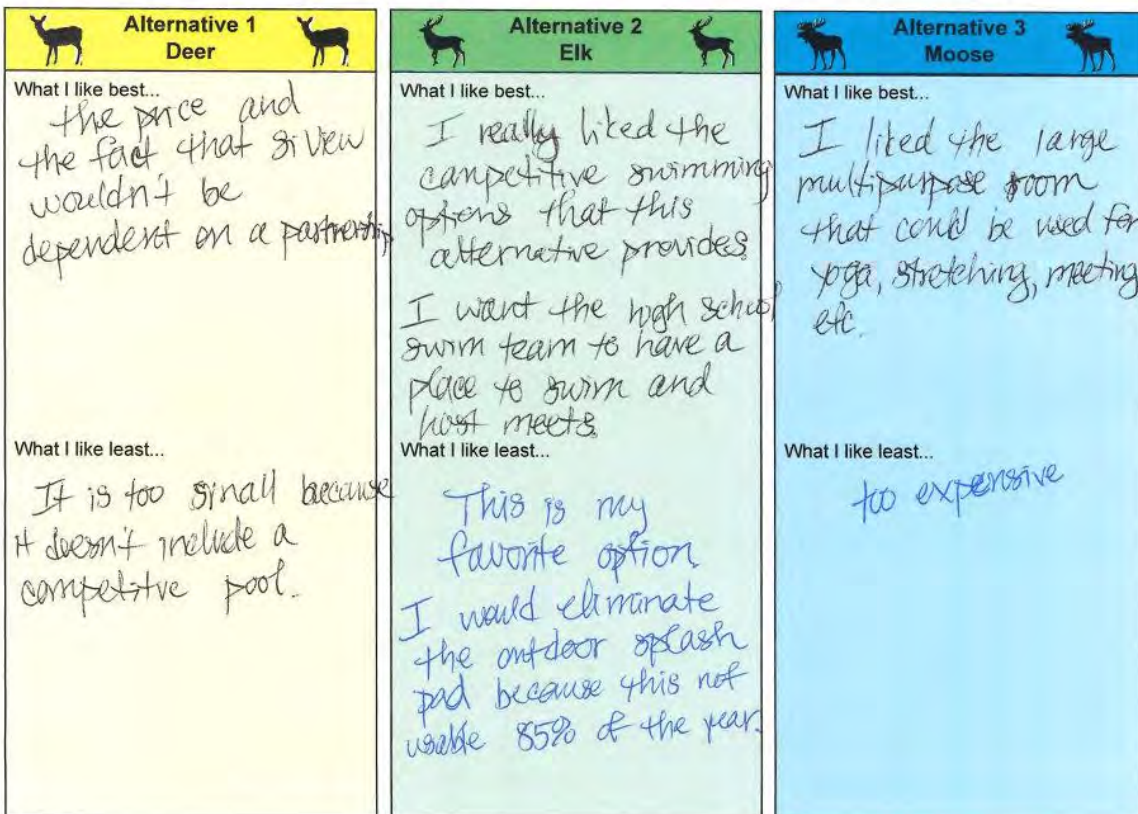 Alternative 1
Deer
What I like best...
the price and
the fact that SiView
wouldn't be
dependent on a partnership
What I like least...
It is too small because
it doesn't include a
competitve pool.
Alternative 2
Elk
What I like best...
I really liked the
competitive swimming
options that this
alternative provides.
I want the high school
swim team to have a
place to swim and
host meets.
What I like least...
This is my
favorite option.
I would eliminate
the outdoor splash
pad because this not
usable 85% of the year.
Alternative 3
Moose
What I like best...
I liked the large
multipurpose room
that could be used for
yoga, stretching, meeting
etc.
What I like least...
too expensive